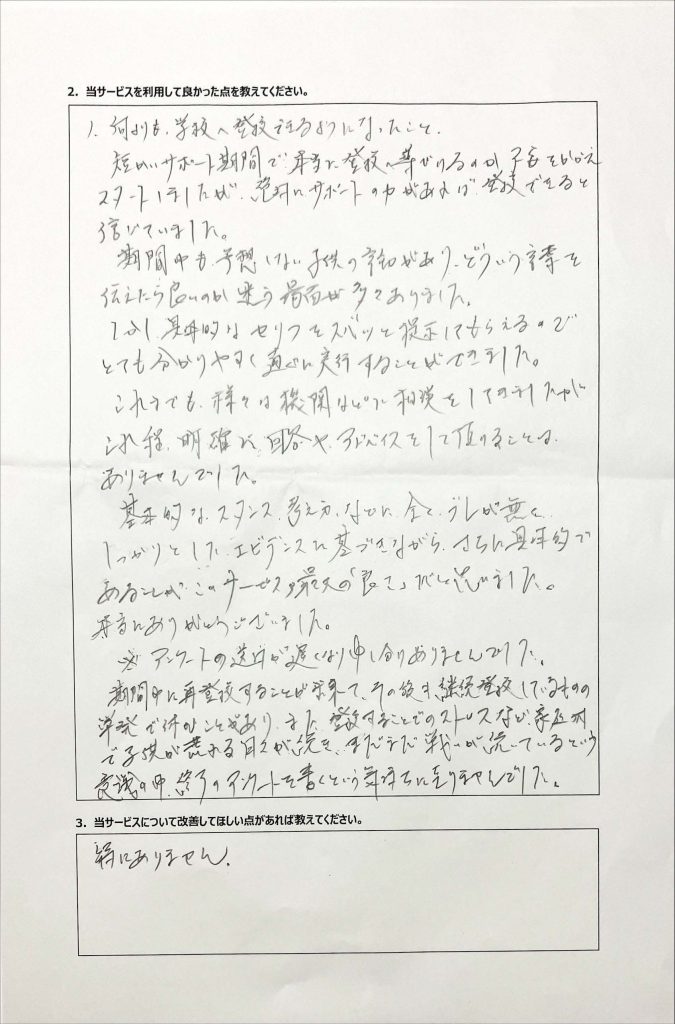 2．当サービスを利用して良かった点を教えてください。
1. 何よりも、学校へ登校できるようになったこと。
短いサポート期間で、本当に登校へ導びけるのか 不安をかかえ
スタートしましたが、絶対にサポートの力があれば、登校できると
信じていました。
期間中も、予想しない子供の言動があり、どういう言葉を
伝えたら良いのか 迷う場面が多々ありました。
しかし、具体的なセリフをズバッと提示してもらえるので
とても分かりやすく 直ぐに実行することができました。
これまでも、様々な機関などに相談をしてきましたが
これ程、明確な、回答や、アドバイスをして頂けることは、
ありませんでした。
基本的な、スタンス、考え方、などに、全く、ブレが無く、
しっかりとした、エビデンスに基づきながら、さらに具体的で
あることが、このサービスの最大の「良さ」だと思いました。
本当にありがとうございました。
※ アンケートの返送が遅くなり申し訳ありませんでした。
期間中に再登校することが出来て、その後も、継続登校しているものの
単発で休むことがあり、また、登校することでのストレスなど、家庭内
で子供が荒れる日々が続き、まだまだ戦いが続いているという
意識の中、終了のアンケートを書くという気持ちに至りませんでした。
3．当サービスについて改善してほしい点があれば教えてください。
特にありません。